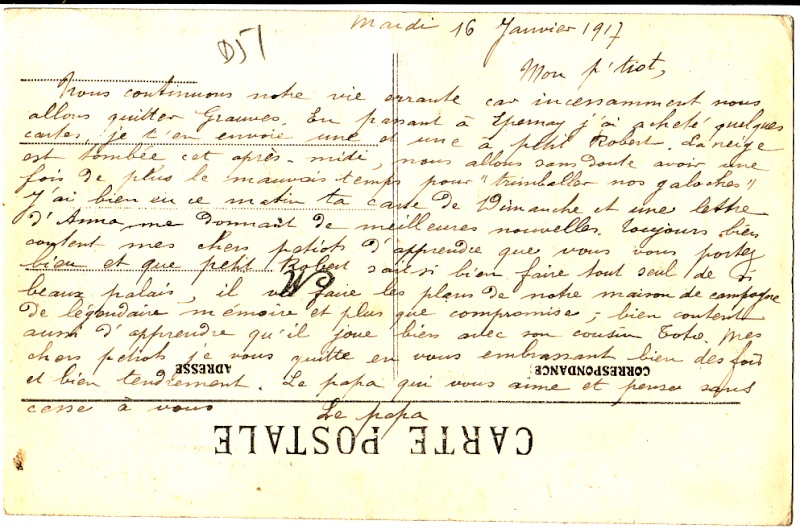 Mardi 16 Janvier 1917
D51
Mon p'tiot,
Nous continuons notre vie errante car incessamment nous
allons quitter Grauves. En passant à Epernay j'ai acheté quelques
cartes, je t'en envoie une et une à petit Robert. La neige
est tombée cet après-midi, nous allons sans doute avoir une
fois de plus le mauvais temps pour "trimballer nos galoches"
J'ai bien eu ce matin ta carte de Dimanche et une lettre
d'Anna me donnant de meilleures nouvelles. Toujours bien
content mes chers petiots d'apprendre que vous vous portez
bien et que petit Robert sait si bien faire tout seul de si
beaux palais, il va faire les plans de notre maison de campagne
de légendaire mémoire et plus que compromise; bien content
aussi d'apprendre qu'il joue bien avec son cousin Toto. Mes
chers petiots je vous quitte en vous embrassant bien des fois
et bien tendrement. Le papa qui vous aime et pense sans
cesse à vous
Le papa
CORRESPONDANCE
ADRESSE
CARTE POSTALE